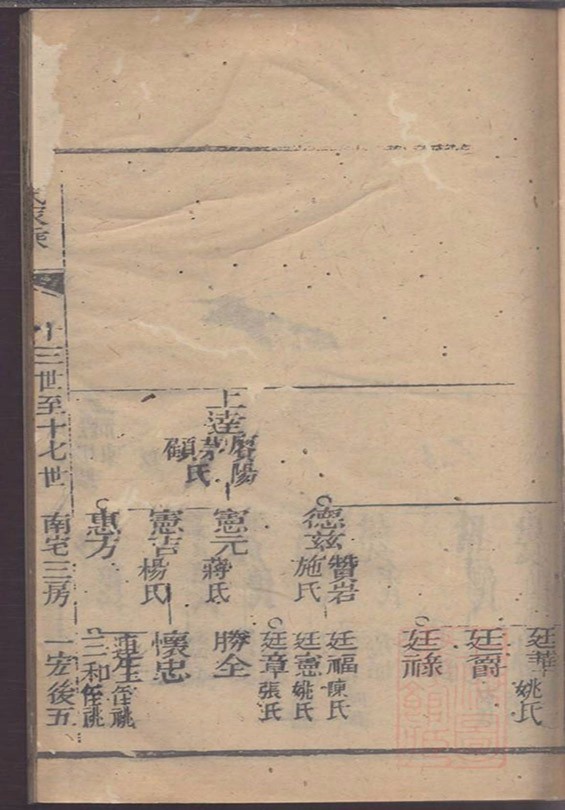 廷華
姚氏
廷爵
廷祿
德玆
贊岩
施氏
廷福
陳氏
廷憲
姚氏
廷章
張氏
上達
陽
顧氏
憲元
蔣氏
勝全
憲吉
楊氏
懷忠
惠方
三和
十三世至十七世
南宅三房
宏後五